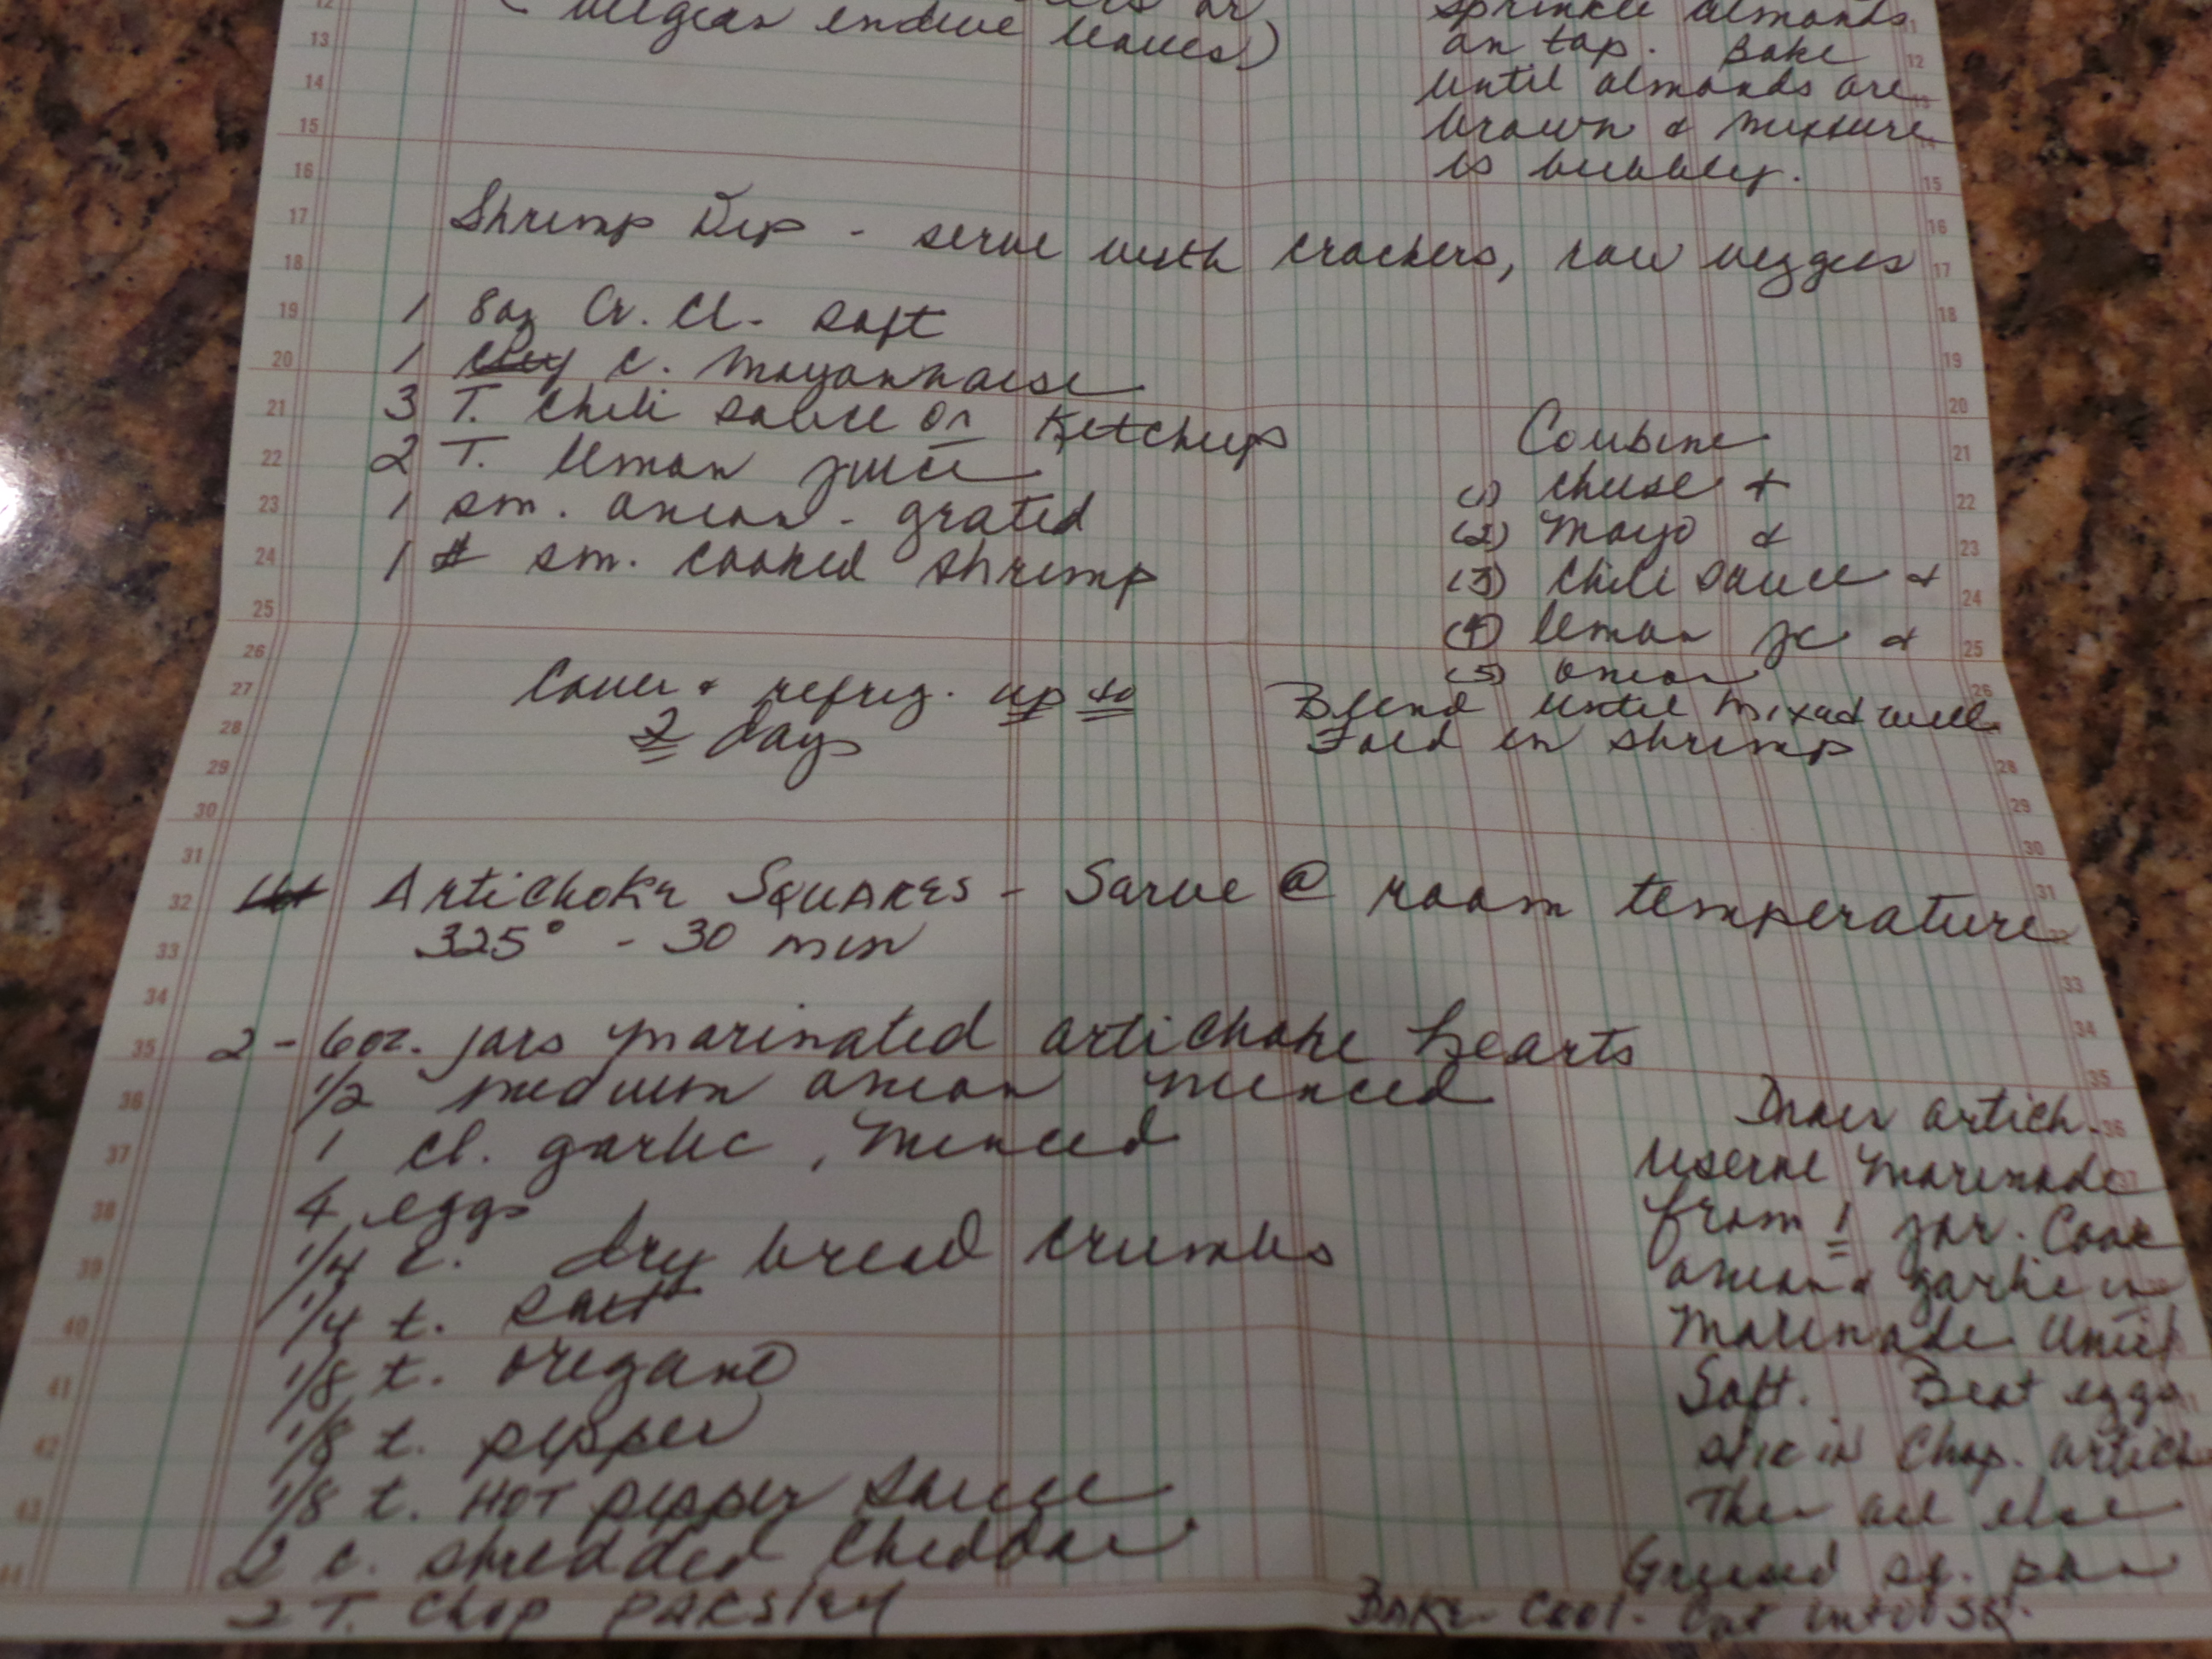 endive leaves)
sprinkle almonds
on top. Bake
until almonds are
brown & mixture
is bubbly.
Shrimp Dip - serve with crackers, raw veggies
1 8oz Cr. Ch. soft
1 c. mayonnaise
3 T. chili sauce or Ketchup
2 T. lemon juice
1 sm. onion - grated
1 # sm. cooked shrimp
Cover & refrig. up to
2 days
Combine
(1) cheese +
(2) mayo &
(3) chili sauce &
(4) lemon jc &
(5) onion
Blend until mixed well
Fold in shrimp
Artichoke Squares - Serve @ room temperature
325° - 30 min
2 - 6oz. jars marinated artichoke hearts
1/2 medium onion minced
1 cl. garlic, minced
4 eggs
1/4 c. dry bread crumbs
1/4 t. salt
1/8 t. oregano
1/8 t. pepper
1/8 t. HOT pepper sauce
2 c. shredded cheddar
2 T. Chop PARSley
Drain artich.
reserve marinade
from 1 jar. Cook
onion & garlic in
marinade until
soft. Beat eggs
stir in chop. artich
Then all else
Greased sq. pan
BAKE - Cool - Cut into sq.